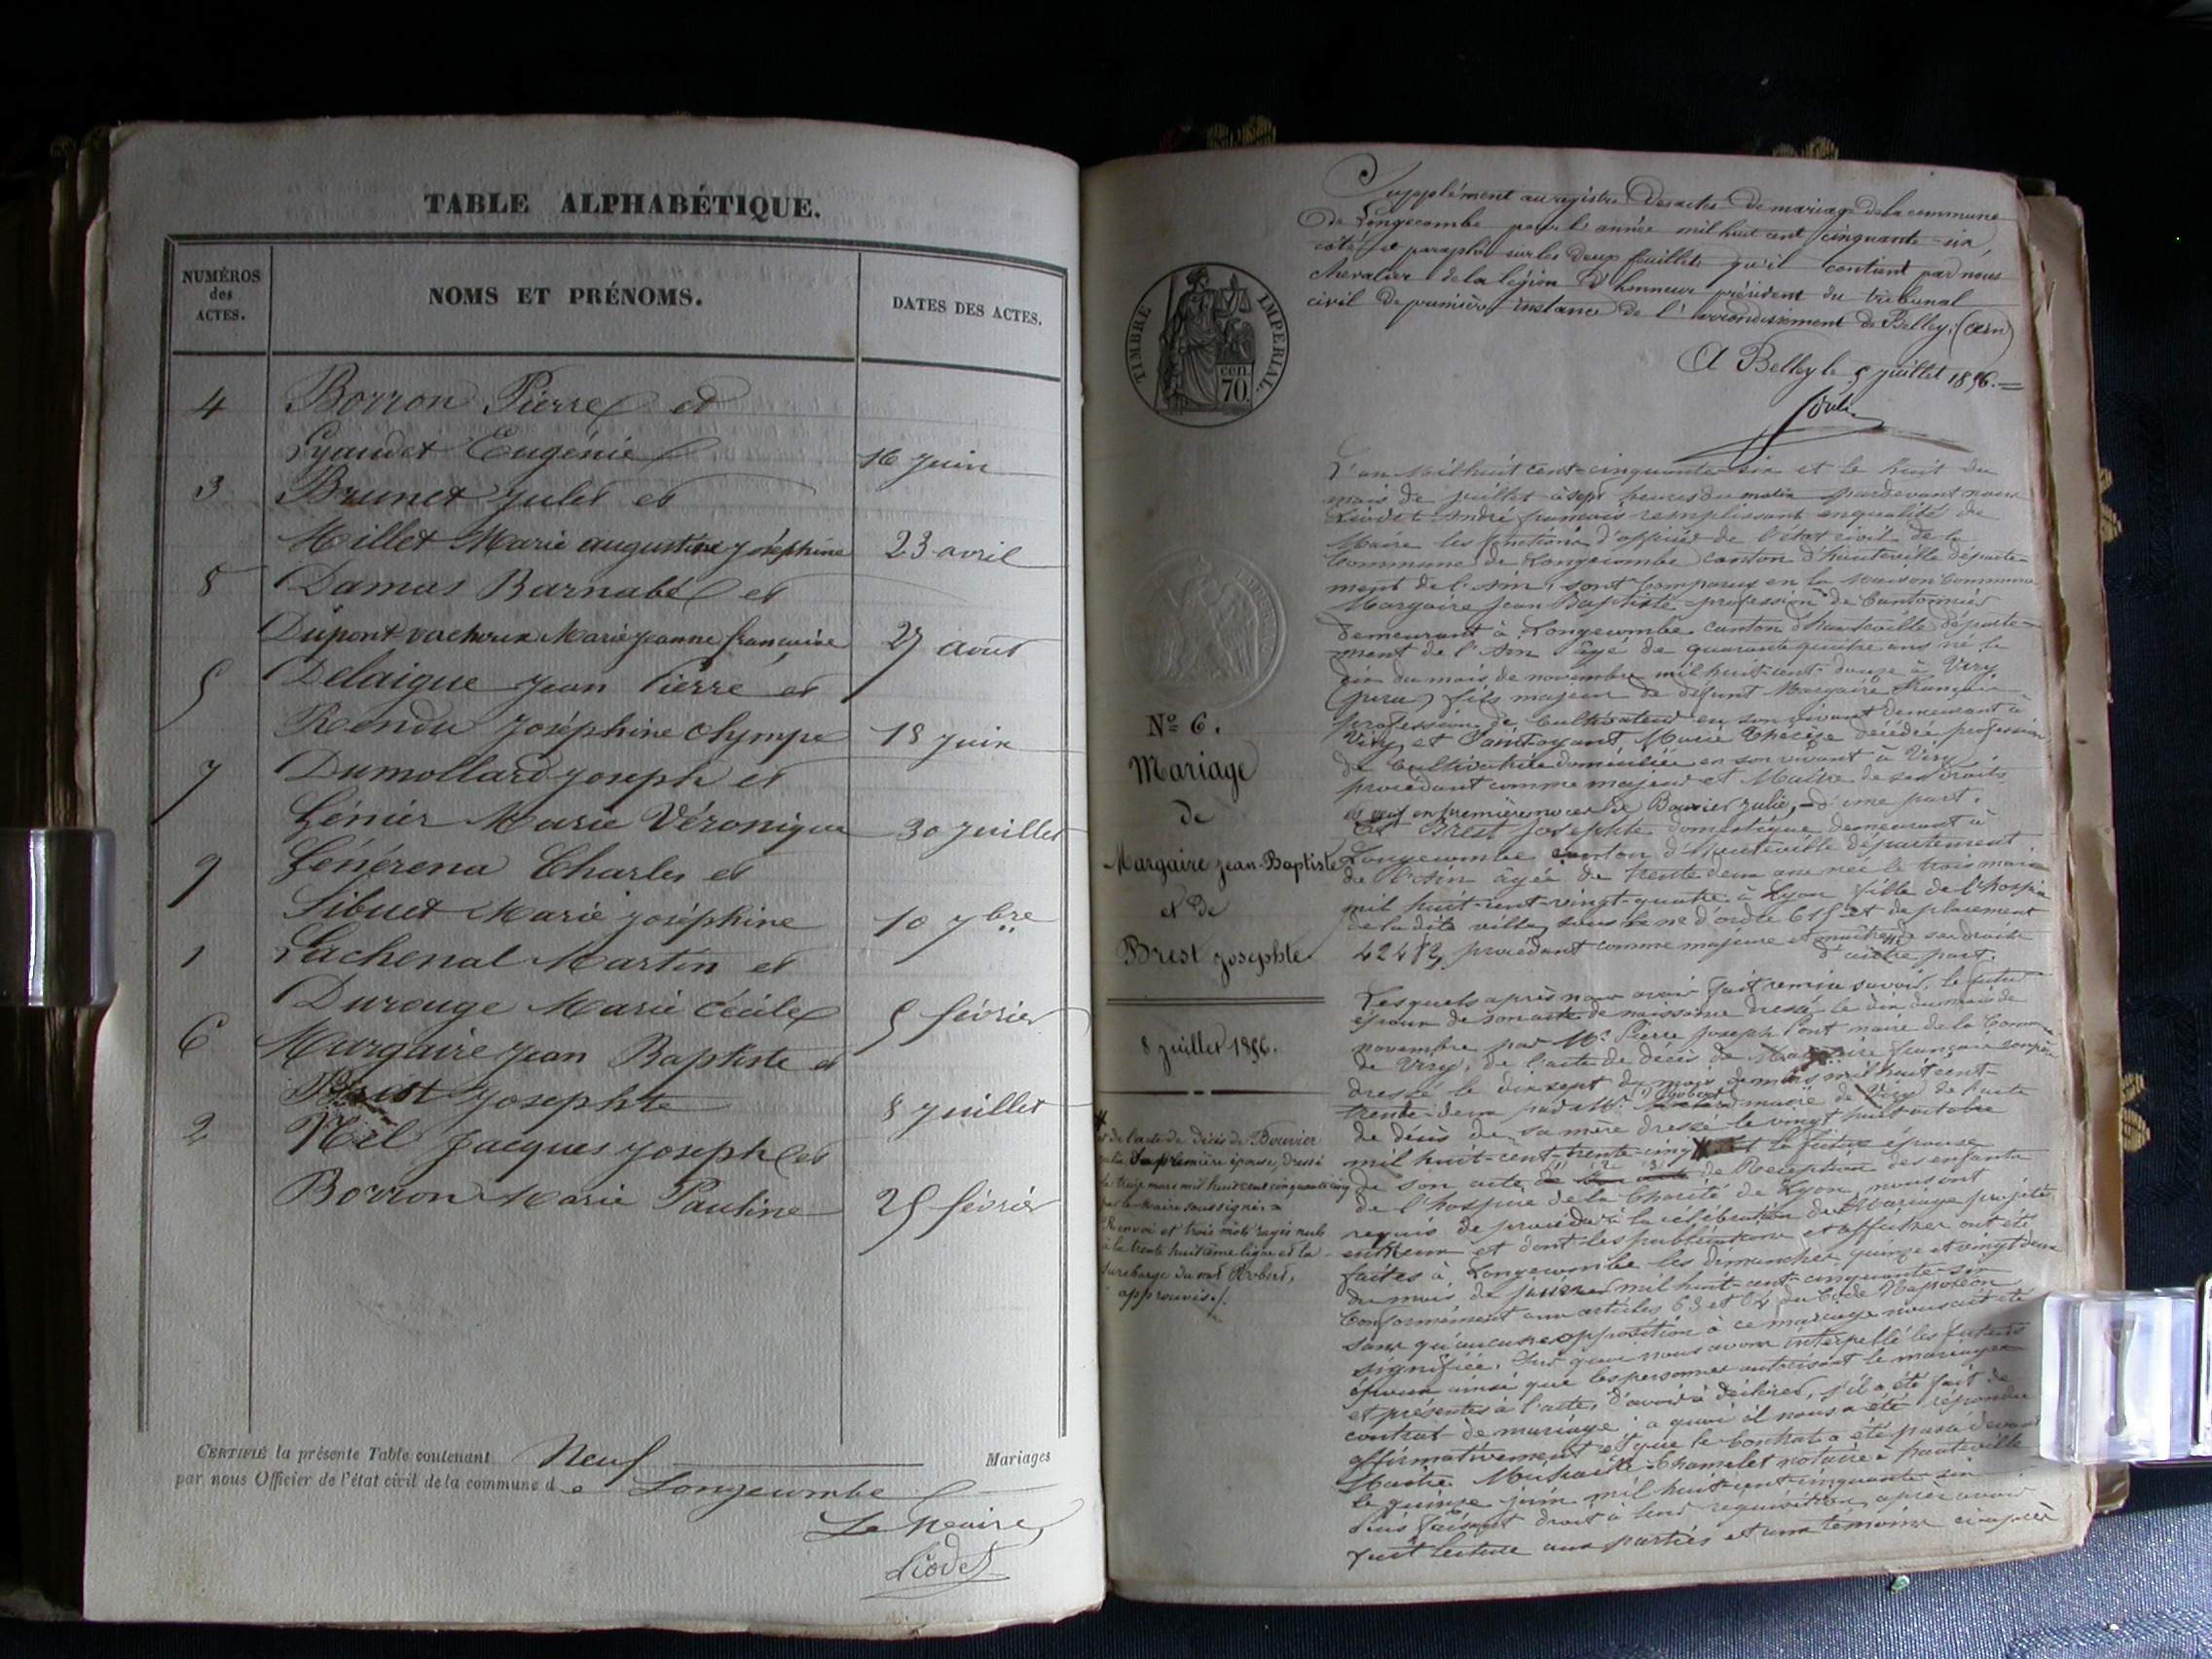 TABLE ALPHABÉTIQUE.
NUMÉROS
des
ACTES.
NOMS ET PRÉNOMS.
DATES DES ACTES.
4 Borron Pierre et
Gyaudet Eugénie 16 juin
3 Brunet Jules et
Millet Marie augustine joséphine 23 avril
8 Damas Barnabé et
Dupont vachoux Marie jeanne françoise 27 août
5 Delaigue Jean Pierre et
Rendu Joséphine olympe 18 juin
7 Dumollard joseph et
Génier Marie Véronique 30 juillet
9 Générena Charles et
Sibuet Marie joséphine 10 7bre
1 Lachenal Martin et
Durouge Marie Cécile 5 février
6 Margaire jean Baptiste et
Brest Josephte 8 juillet
2 Nil Jacques joseph et
Borron Marie Pauline 25 février
CERTIFIÉ la présente Table contenant Neuf Mariages
par nous Officier de l'état civil de la commune de Longecombe
Le Maire
Liodet
Supplément au registre des actes de mariage de la commune
de Longecombe pour l'année mil huit cent cinquante-six,
coté et paraphé sur les deux feuillets qu'il contient par nous
chevalier de la légion d'honneur président du tribunal
civil de première instance de l'arrondissement de Belley, (ain)
A Belley le 5 juillet 1856.
TIMBRE IMPÉRIAL.
cen
70.
L'an mil huit cent-cinquante-six et le huit du
mois de juillet à sept heures du matin pardevant nous
Liodet André françois remplissant en qualité de
Maire les fonctions d'officier de l'état civil de la
commune de Longecombe canton d'hauteville départe-
ment de l'Ain, sont comparus en la Maison Commune
Margaire Jean Baptiste profession de Cantonnier
demeurant à Longecombe canton d'hauteville départe-
ment de l'Ain âgé de quarante quatre ans né le
dix du mois de novembre mil huit-cent-douze à Viry
(jura) fils majeur de défunt Margaire François
profession de Cultivateur en son vivant demeurant à
Viry et Saintoyant Marie Thérèse décédée profession
de Cultivatrice domiciliée en son vivant à Viry,
procédant comme majeur et Maître de ses droits
et veuf en première noces de Bouvier julie, d'une part.
Et Brest josephte domestique demeurant à
Longecombe canton d'Hauteville département
de l'Ain âgée de trente deux ans née le trois mars
mil huit-cent-vingt-quatre à Lyon fille de l'hospice
de la dite ville, sous le no d'ordre 615 et de placement
42482, procédant comme majeure et maîtresse de ses droits
d'autre part.
Lesquels après nous avoir fait remise savoir, le futur
époux de son acte de naissance dressé le dix du mois de
novembre par Mr Pierre joseph Pont maire de la Commune
de Viry, de l'acte de décès de Margaire françois son père
dressé le dix sept du mois de mars mil huit cent-
trente-deux par Mr Robert maire de Viry de l'acte
de décès de sa mère dressé le vingt huit octobre
mil huit-cent-trente-cinq et la future épouse
de son acte de Réception des enfants
de l'hospice de la Charité de Lyon, nous ont
requis de procéder à la célébration du Mariage projeté
entreeux et dont les publications et affiches ont été
faites à Longecombe les dimanches quinze et vingt deux
du mois de juin mil huit-cent-cinquante-six
Conformément aux articles 63 et 64 du Code Napoléon
sans qu'aucune opposition à ce mariage nous ait été
signifiée. Sur quoi nous avons interpellé les futurs
époux ainsi que les personnes autorisant le mariage
et présentes à l'acte, d'avoir à déclarer, s'il a été fait de
contrat de mariage, à quoi il nous a été répondu
affirmativement et que le Contrat a été passé devant
Maître Chamelet notaire à hauteville
le quinze juin mil huit-cent-cinquante six
Puis faisant droit à leur réquisition, après avoir
fait lecture aux parties et aux témoins ci-après
No 6.
Mariage
de
Margaire jean-Baptiste
et de
Brest josephte
8 juillet 1856.
et de l'acte de décès de Bouvier
julie sa première épouse, dressé
le treize mars mil huit cent cinquante cinq
par le Maire soussigné.
Renvoi et trois mots rayés nuls
à la trente huitième ligne et la
surcharge du mot Robert,
approuvés.